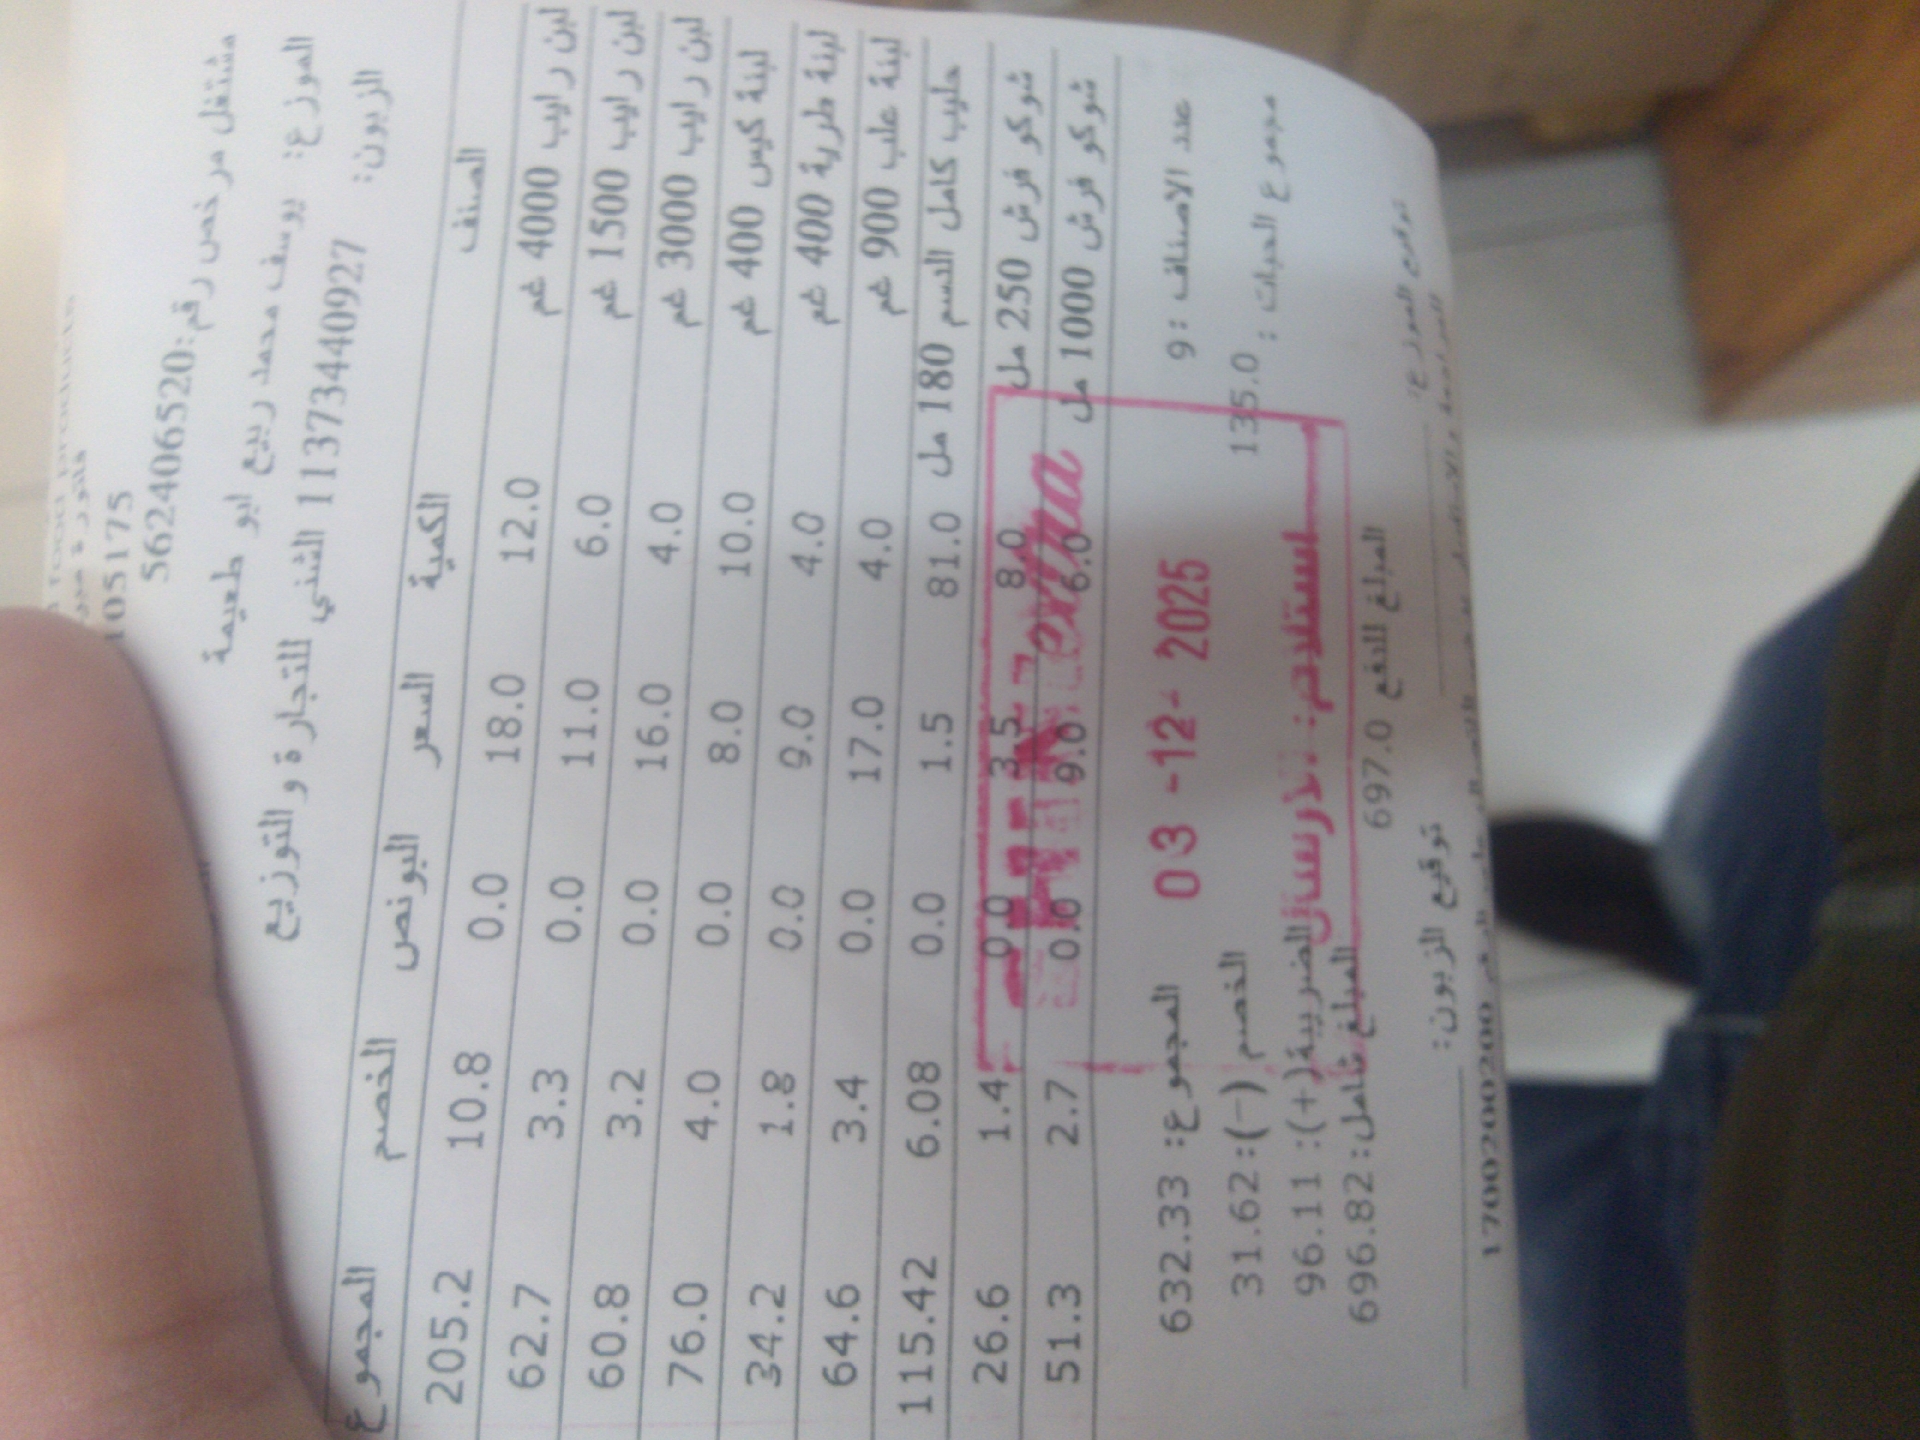 food products
فاتورة
105175
مشتغل مرخص رقم:562406520
الموزع: يوسف محمد ربيع ابو طعيمة
الزبون: 1137344092​7 الثني للتجارة و التوزيع
الصنف الكمية السعر البونص الخصم المجموع
لبن رايب 4000 غم 12.0 18.0 0.0 10.8 205.2
لبن رايب 1500 غم 6.0 11.0 0.0 3.3 62.7
لبن رايب 3000 غم 4.0 16.0 0.0 3.2 60.8
لبنة كيس 400 غم 10.0 8.0 0.0 4.0 76.0
لبنة طرية 400 غم 4.0 9.0 0.0 1.8 34.2
لبنة علب 900 غم 4.0 17.0 0.0 3.4 64.6
حليب كامل الدسم 180 مل 81.0 1.5 0.0 6.08 115.42
شوكو فرش 250 مل 8.0 3.5 0.0 1.4 26.6
شوكو فرش 1000 مل 6.0 9.0 0.0 2.7 51.3
extra
عدد الاصناف :9 المجموع: 632.33
03 -12- 2025
مجموع الحبات : 135.0 الخصم (-):31.62
الضريبة(+): 96.11
استلام:
المبلغ شامل:696.82
المبلغ للدفع 697.0
توقيع الموزع: توقيع الزبون:
1700200200